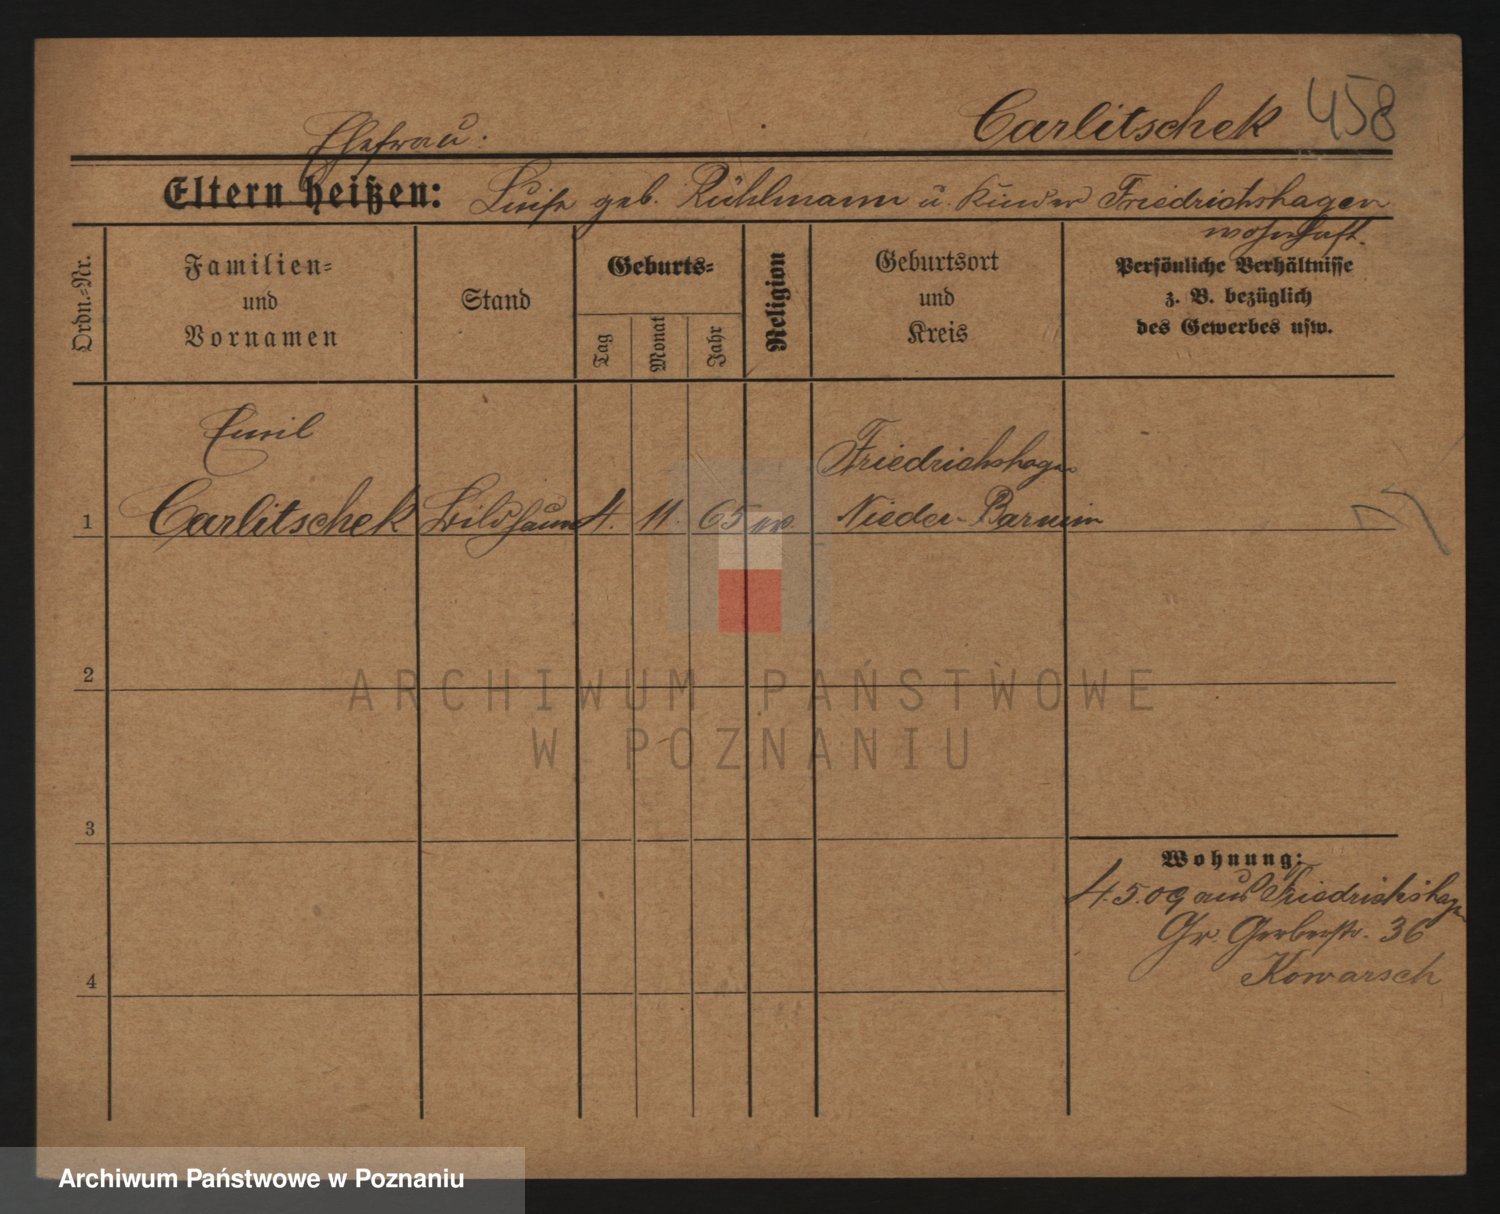 Carlitschek 458
Ehefrau:
Eltern heißen: Luise geb. Rühlmann u. Kinder Friedrichshagen
wohnhaft.
Ordn.-Nr.
Familien-
und
Vornamen
Stand
Geburts-
Tag
Monat
Jahr
Religion
Geburtsort
und
Kreis
Persönliche Verhältnisse
z. B. bezüglich
des Gewerbes usw.
Emil
Friedrichshagen
1 Carlitschek Bildhauer 4. 11. 65 Nieder-Barnim
2
ARCHIWUM PAŃSTWOWE
W POZNANIU
3
Wohnung:
4.5.09 aus Friedrichshagen
Gr. Gerberstr. 36
Kowarsch
4
Archiwum Państwowe w Poznaniu